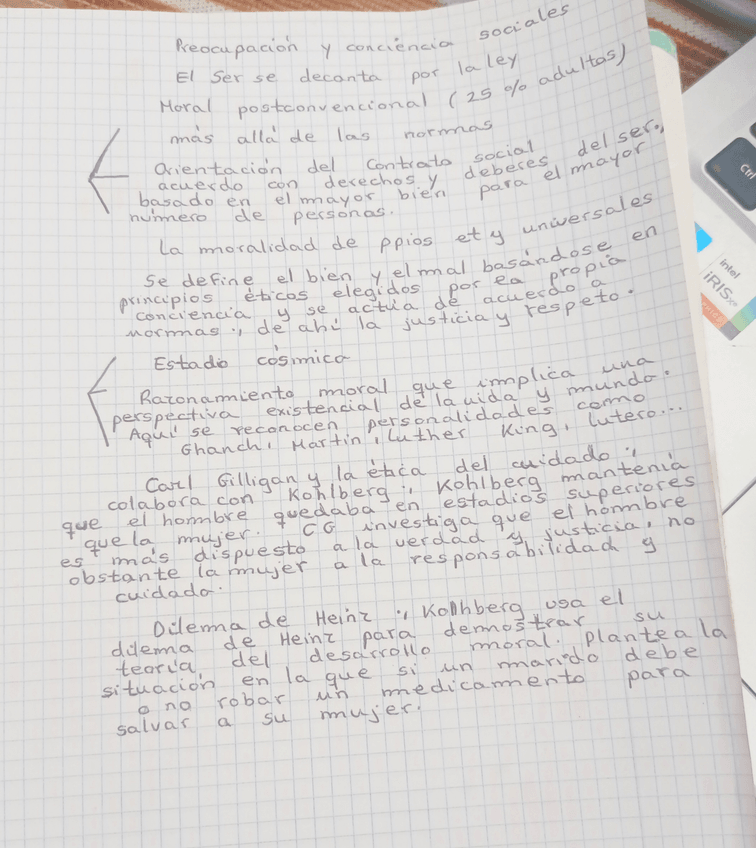 Preocupación y conciencia sociales
El Ser se decanta por la ley
Moral postconvencional (25% adultas)
más allá de las normas
Orientación del contrato social
acuerdo con derechos y deberes del ser,
basado en el mayor bien para el mayor
número de personas.
La moralidad de ppios et y universales
Se define el bien y el mal basándose en
principios éticos elegidos por ea propia
conciencia y se actúa de acuerdo a
normas ; de ahí la justicia y respeto.
Estadio cósmica
Razonamiento moral que implica una
perspectiva existencial de la vida y mundo.
Aquí se reconocen personalidades como
Ghandi, Martin, Luther King, Lutero...
Carl Gilligan y la ética del cuidado ;
colabora con Kohlberg ; Kohlberg mantenía
que el hombre quedaba en estadios superiores
que la mujer. CG investiga que el hombre
es más dispuesto a la verdad y justicia, no
obstante la mujer a la responsabilidad y
cuidado.
Dilema de Heinz ; Kolhberg usa el
dilema de Heinz para demostrar su
teoría del desarrollo moral. Plantea la
situación en la que si un marido debe
o no robar un medicamento para
salvar a su mujer.
Ctrl
intel
iRIS